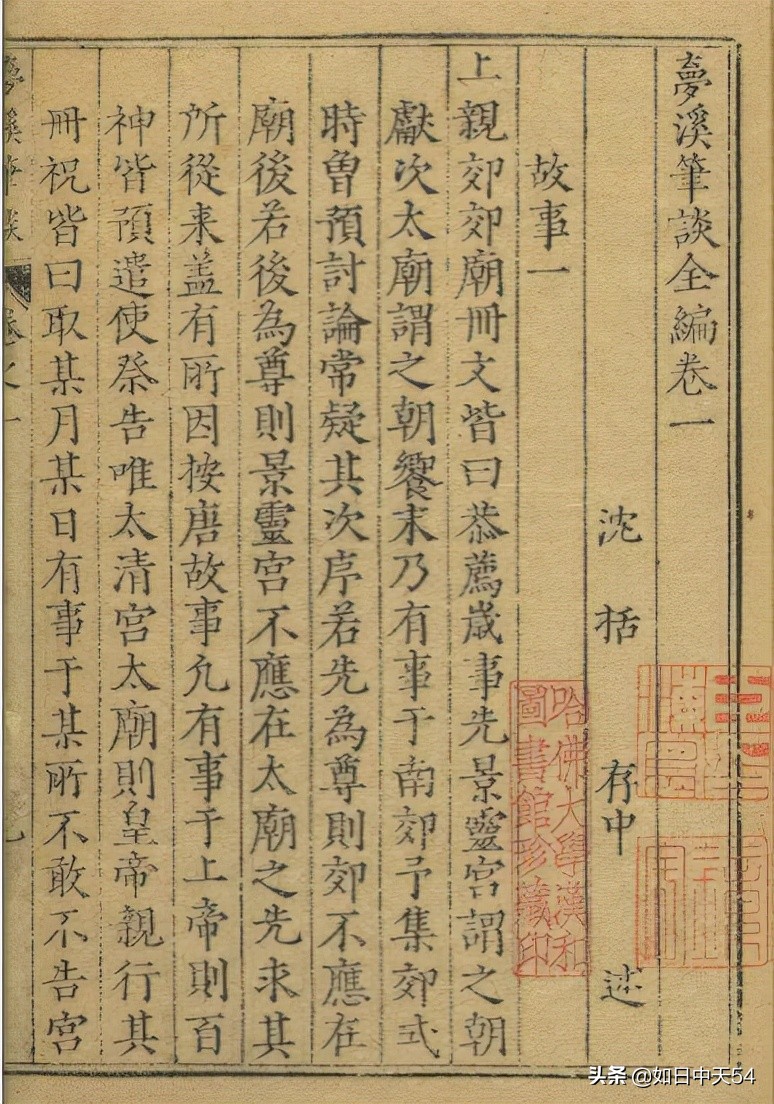 夢溪筆談全編卷一
沈括 存中 述
故事一
上親郊郊廟冊文皆曰恭薦歲事先景靈宮謂之朝
獻次太廟謂之朝饗末乃有事于南郊予集郊式
時曾預討論常疑其次序若先為尊則郊不應在
廟後若後為尊則景靈宮不應在太廟之先求其
所從来盖有所因按唐故事凢有事于上帝則百
神皆預遣使祭告唯太清宮太廟則皇帝親行其
冊祝皆曰取某月某日有事于某所不敢不告宮
夢溪筆談 卷之一
哈佛大學漢和
圖書館珍藏印
头条 @如日中天54